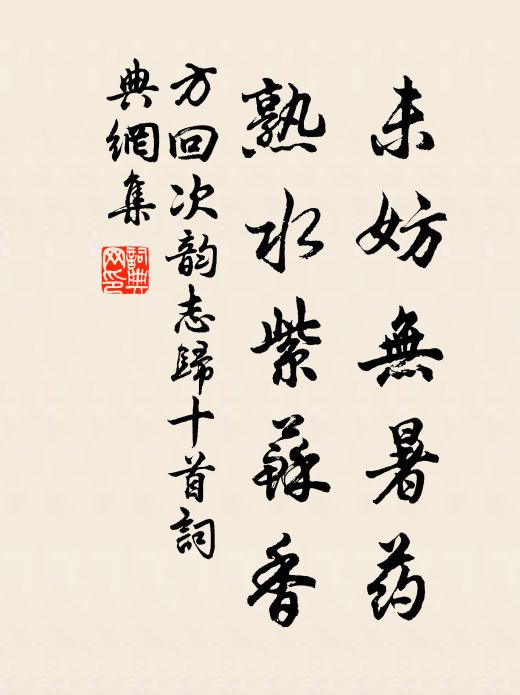 未妨無暑药
熟水紫蘇香
方回次韵志歸十首詞
典網集
詞典
网印